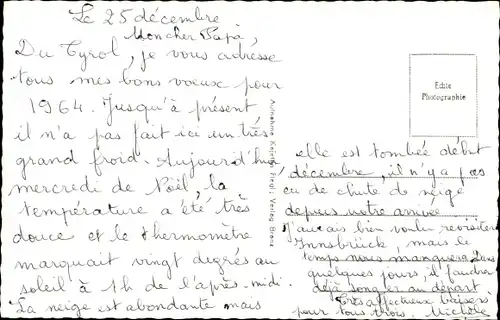 Le 25 décembre
Mon cher Papa,
Du Tyrol, je vous adresse
tous mes bons voeux pour
1964. Jusqu'à présent
il n'a pas fait ici un très
grand froid. Aujourd'hui,
mercredi de Noël, la
température a été très
douce et le thermomètre
marquait vingt degrés au
soleil à 1h de l'après-midi.
La neige est abondante mais
elle est tombée début
décembre, il n'y a pas
eu de chute de neige
depuis notre arrivée
J'aurais bien voulu revisiter
Innsbrück, mais le
temps nous manquera. Dans
quelques jours il faudra
déjà songer au départ.
Très affectueux baisers
pour tous trois.
Aufnahme Verlag
Echte
Photographie